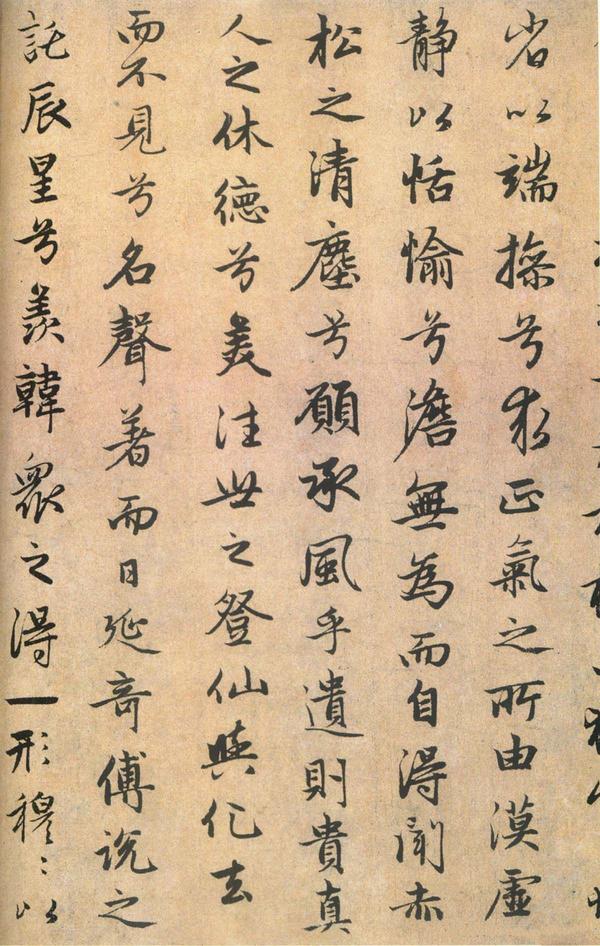 省以端操兮求正氣之所由漠虛
靜以恬愉兮澹無為而自得聞赤
松之清塵兮願承風乎遺則貴真
人之休德兮羨徃世之登仙與化去
而不見兮名聲著而日延奇傅說之
託辰星兮羨韓眾之得一形穆〻以